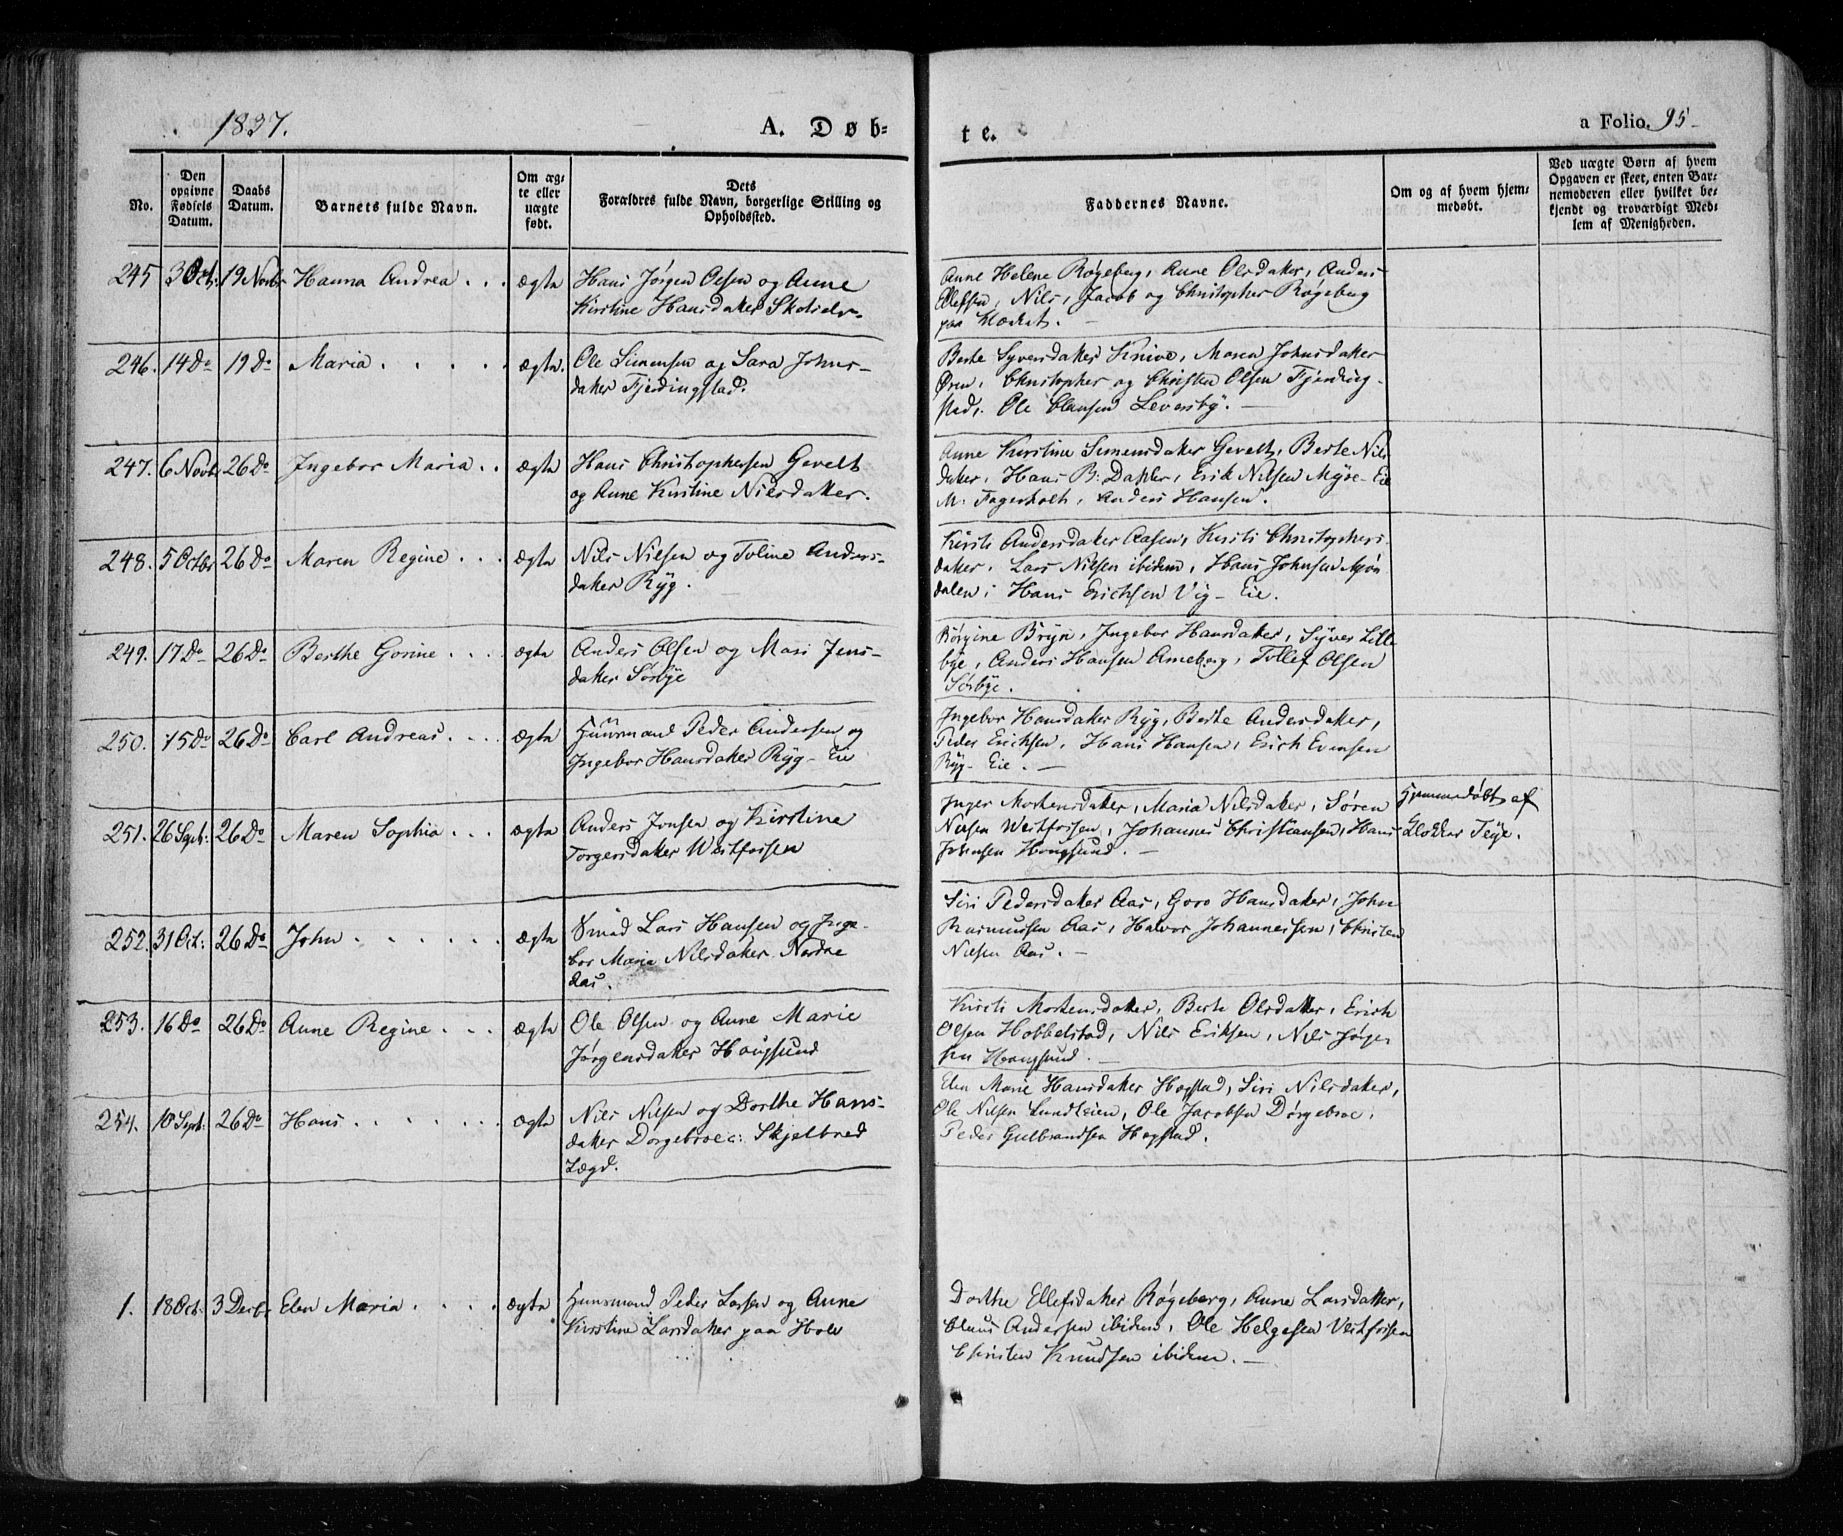 1837.
A. Døb-
te.
a Folio. 95
No.
Den opgivne Fødsels Datum.
Daabs Datum.
Barnets fulde Navn.
Om ægte eller uægte født.
Dets Forældres fulde Navn, borgerlige Stilling og Opholdssted.
Faddernes Navne.
Om og af hvem hjemmedøbt.
Ved uægte Børn af hvem Opgaven er skeet, enten Barnemoderen eller hvilket bekjendt og troværdigt Medlem af Menigheden.
245 3 Oct: 19 Novbr Hanna Andrea . . ægta Hans Jørgen Olsen og Anne
Kirstine Hansdaker
Anne Helene Røgeberg, Anne Olsdaker, Anders
Ellefsen, Nils, Jacob og Christopher Røgeberg
paa
246. 14 Do 19 Do Maria . . . . ægta. Ole Simensen og Sara Johns-
daker Fjerdingstad.
Berte Syversdaker Knive, Maren Johnsdaker
Øren, Christopher og Christen Olsen Fjerding-
stad, Ole Clausen Leversby. —
247. 6 Novbr 26 Do Ingebor Maria . . ægta Hans Christophersen Gevelt
og Anne Kirstine Nilsdaker.
Anne Kirstine Simensdaker Gevelt, Berte Nils
daker, Hans B: Dahler, Erik Nilsen Myre-Eie
M: Fagerholt, Anders Hansen.
248. 5 Octbr 26 Do Maren Regine . . . ægta Nils Nilsen og Toline Anders-
daker Ryg.
Kirsti Andersdaker Aasen, Kersti Christophers
daker, Lars Nilsen ibidem, Hans Johnsen Mjøn
dalen, Hans Erichsen Vig-Eie.
249. 17 Do 26 Do Berthe Gorine . . . ægta Anders Olsen og Mari Jens-
daker Sørbye
Børgine Bryn, Ingebor Hansdaker, Syver Lille
bye, Anders Hansen Arneberg, Tollef Olsen
Sørbye.
250. 15 Do 26 Do Carl Andreas . . . ægta Huusmand Peder Andersen og
Ingebor Hansdaker Ryg-Eie
Ingebor Hansdaker Ryg, Berte Andersdaker,
Peder Erichsen, Hans Hansen, Erich Evensen
Ryg-Eie. —
251. 26 Sept: 26 Do Maren Sophia . . . ægta Anders Jonsen og Kirstine
Torgersdaker Westfossen
Inger Mortensdaker, Maria Nilsdaker, Søren
Nilsen Westfossen, Johannes Christiansen, Hans
Johnsen Hougsund. —
Hjemmedøbt af
Klokker Teye.
252. 31 Oct: 26 Do John . . . . . . ægta Smed Lars Hansen og Inge-
bor Maria Nilsdaker Nordre
Aas.
Siri Pedersdaker Aas, Goro Hansdaker, John
Rasmussen Aas, Halvor Johannessen, Christen
Nilsen Aas. —
253. 16 Do 26 Do Anne Regine . . . ægta Ole Olsen og Anne Marie
Jørgensdaker Hougsund
Kirsti Mortensdaker, Berte Olsdaker, Erich
Olsen Hobbelstad, Nils Eriksen, Nils Jørgen
sen Hougsund. —
254. 10 Sept: 26 Do Hans . . . . . . ægta Nils Nilsen og Dorthe Hans-
daker Dørgebroe c: Skjelbred
Lægd.
Elen Marie Hansdaker Hogstad, Siri Nilsdaker,
Ole Nilsen Lundteien, Ole Jacobsen Dørgebroe,
Peder Gulbrandsen Hogstad.
1. 18 Oct: 3 Decbr Elen Maria . . . . ægta Huusmand Peder Larsen og Anne
Kirstine Larsdaker paa Hole
Dorthe Ellefsdaker Røgeberg, Anne Larsdakker,
Claus Andersen ibidem, Ole Helgesen Vestfossen
Christen Knudsen ibidem. —